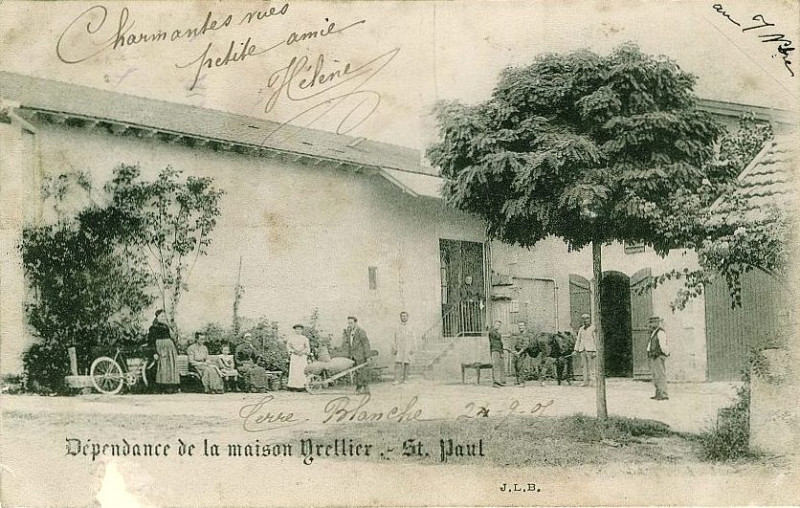 Charmantes vues
petite amie
Hélène
au
Terre Blanche 24-9-
Dépendance de la maison Vrellier .- St. Paul
J.L.B.